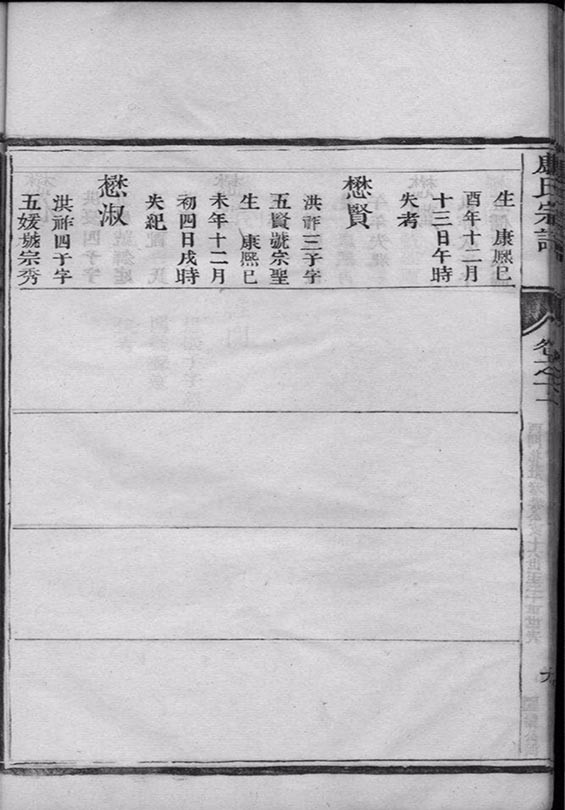 氏宗譜
生　康熙巳
酉年十二月
十三日午時
失考
懋賢
洪祚三子字
五賢號宗聖
生　康熙巳
未年十二月
初四日戌時
失紀
懋淑
洪祚四子字
五媛號宗秀